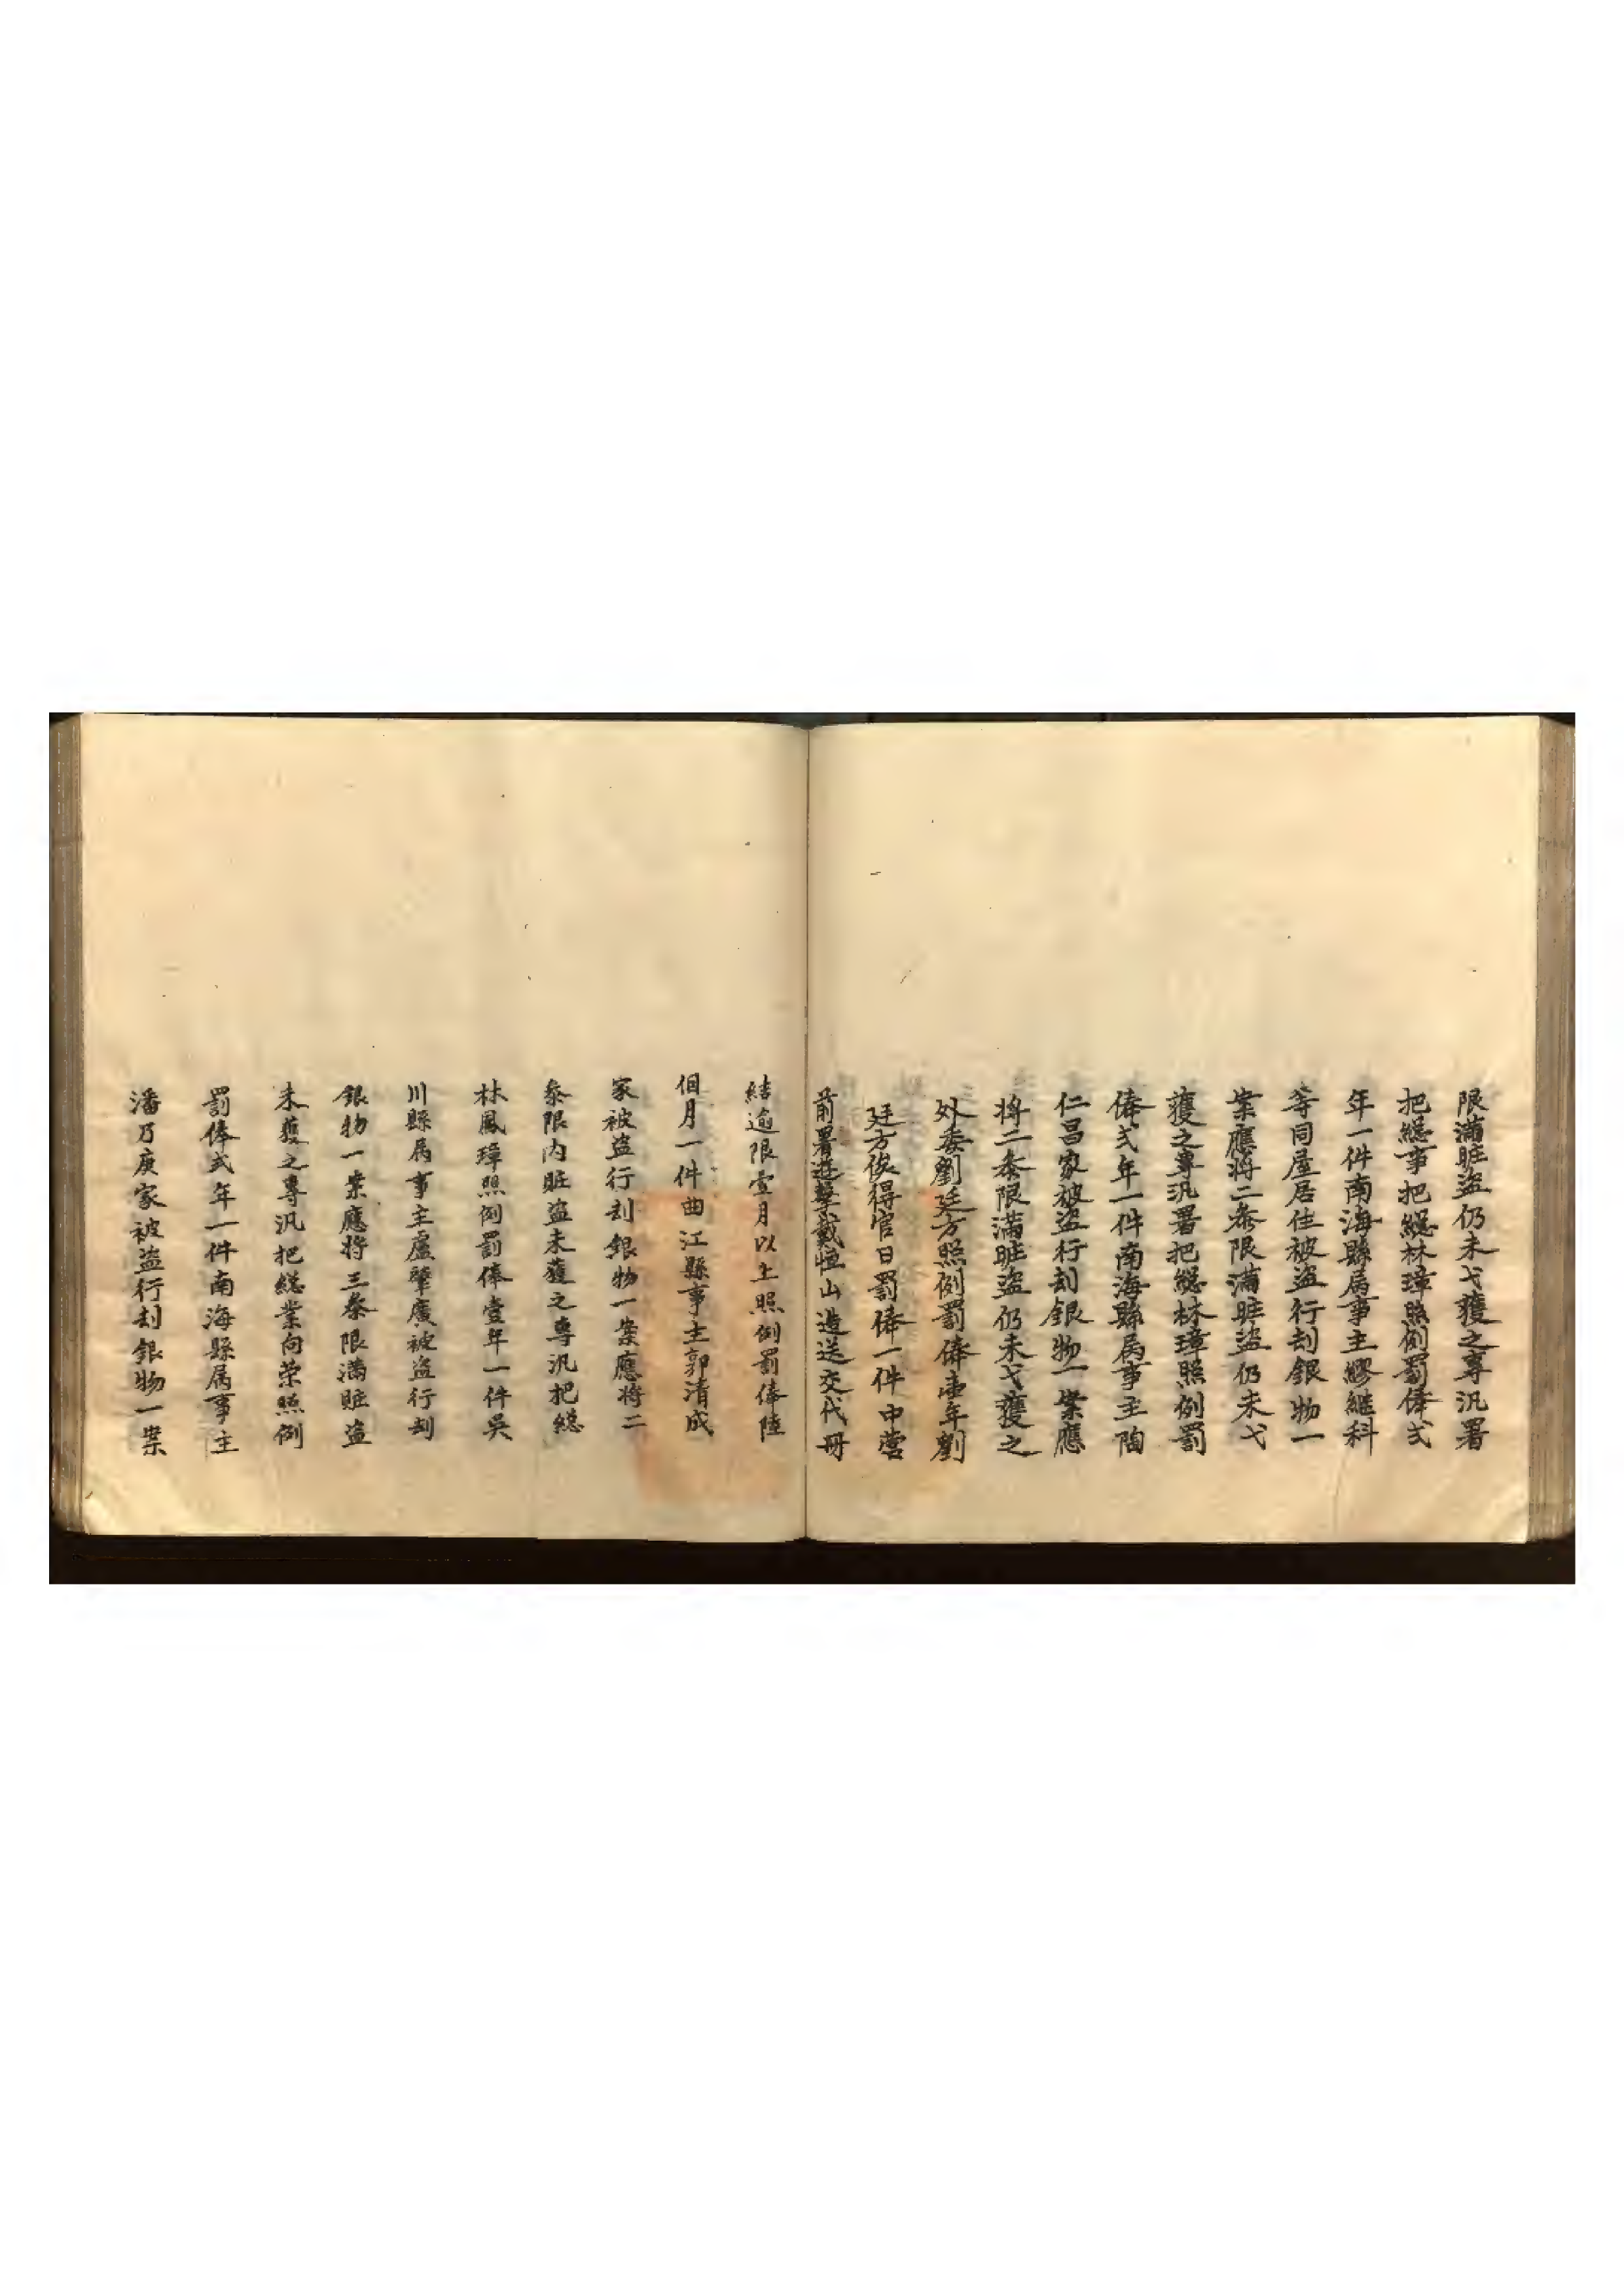 限滿賍盜仍未弋獲之專汛署
把緫事把緫林璋照例罰俸弍
年一件南海縣属事主繆繼科
等同屋居住被盜行刦銀物一
案應將二叅限滿賍盜仍未弋
獲之專汛署把緫林璋照例罰
俸弍年一件南海縣属事主陶
仁昌家被盜行刦銀物一案應
將二叅限滿賍盜仍未弋獲之
外委劉廷方照例罰俸壷年劉
廷方俟得官日罰俸一件中營
前署遊擊戴恒山造送交代冊
結逾限壹月以上照例罰俸陸
個月一件曲江縣事主郭清成
家被盜行刦銀物一案應將二
叅限内賍盜未獲之專汛把緫
林鳳璋照例罰俸壹年一件吳
川縣属事主盧肇廣被盜行刦
銀物一案應將三叅限滿賍盜
未獲之專汛把緫業向荣照例
罰俸弍年一件南海縣属事主
潘乃庚家被盜行刦銀物一案